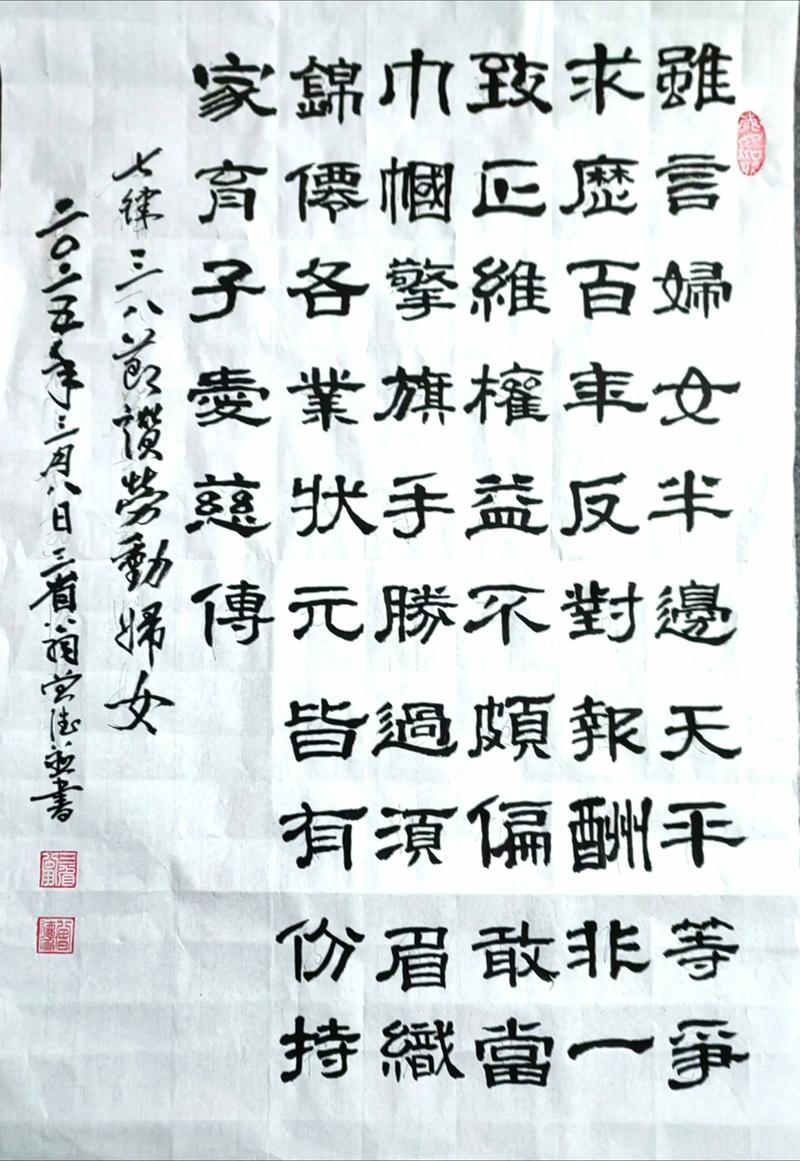 雖言婦女半邊天平等爭
求歷百年反對報酬非一
致正維權益不頗偏敢當
巾幗擎旗手勝過須眉織
錦僊各業狀元皆有份持
家育子愛慈傳
七律三八節讚勞動婦女
二〇二五年三月八日三省翁德書